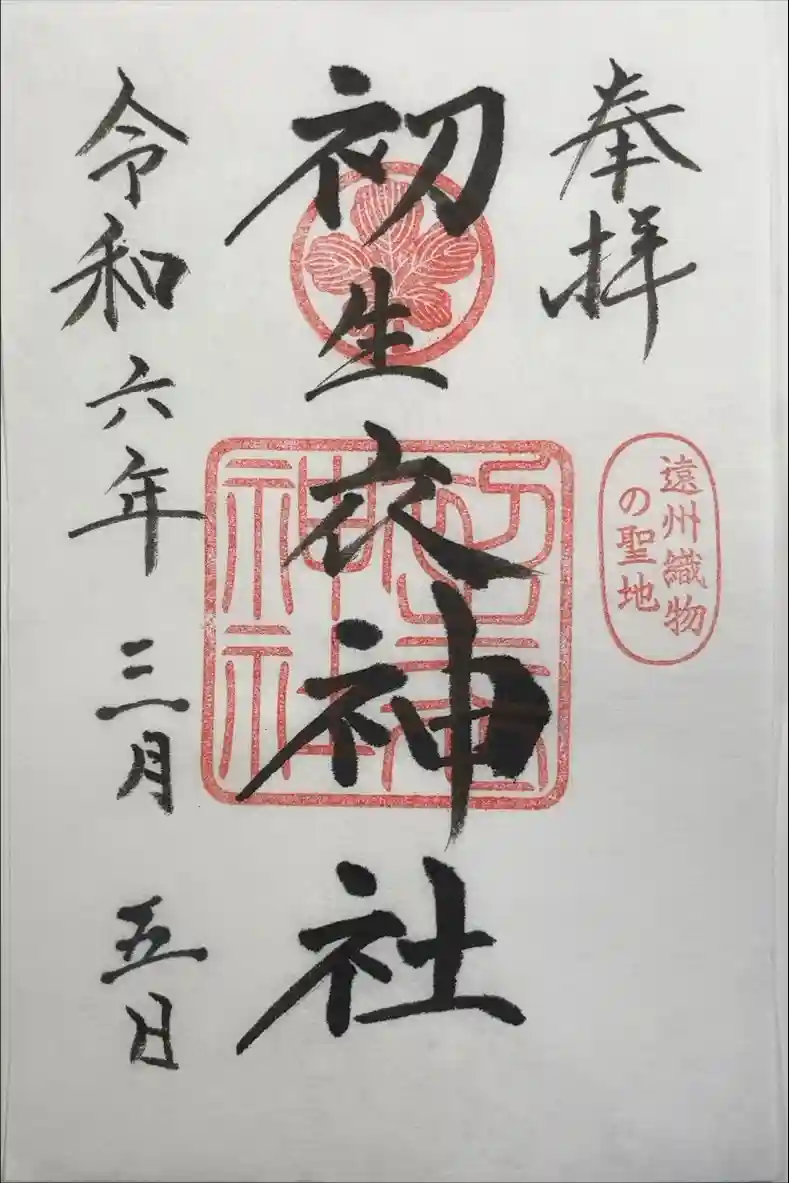 奉拝
遠州織物
の聖地
初生衣神社
初生衣
神社
令和六年 三月 五日